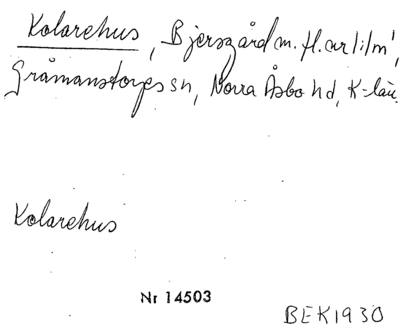 Kolarehus, Bjersgård m. fl. nr 1:1 m',
Gråmanstorps sn, Norra Åsbo hd, K-län.
Kolarehus
Nr 14503
BEK 1930